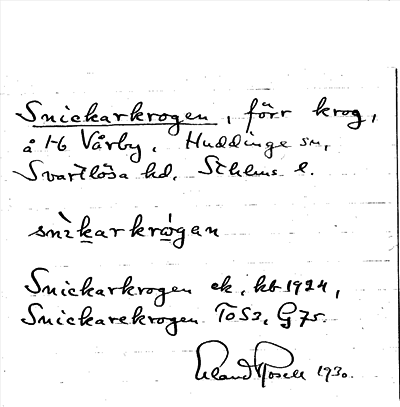 Snickarkrogen, förr krog,
å 1-6 Vårby, Huddinge sn,
Svartlösa hd, Sthlms l.
snìkarkrógan
Snickarkrogen ek. kb 1924,
Snickarekrogen To52, G 75.
Erland Rosell 1930.